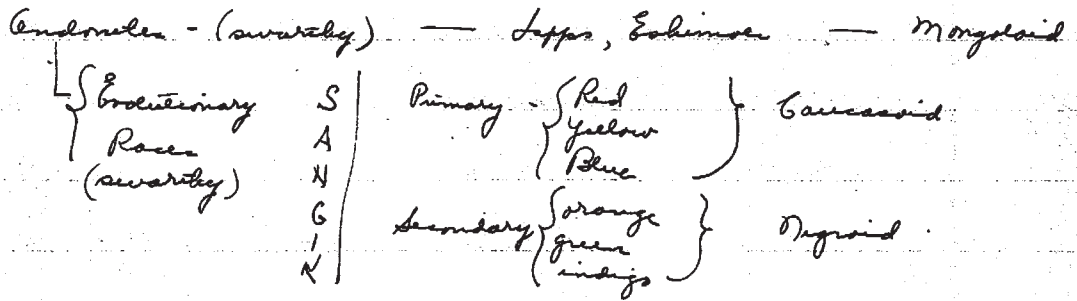 Andonites - (swarthy) — Lapps, Eskimoes — Mongoloid
Evolutionary Races (swarthy)
SANGIK
Primary - Red
Yellow
Blue
Caucasoid
Secondary orange
green
indigo
Negroid